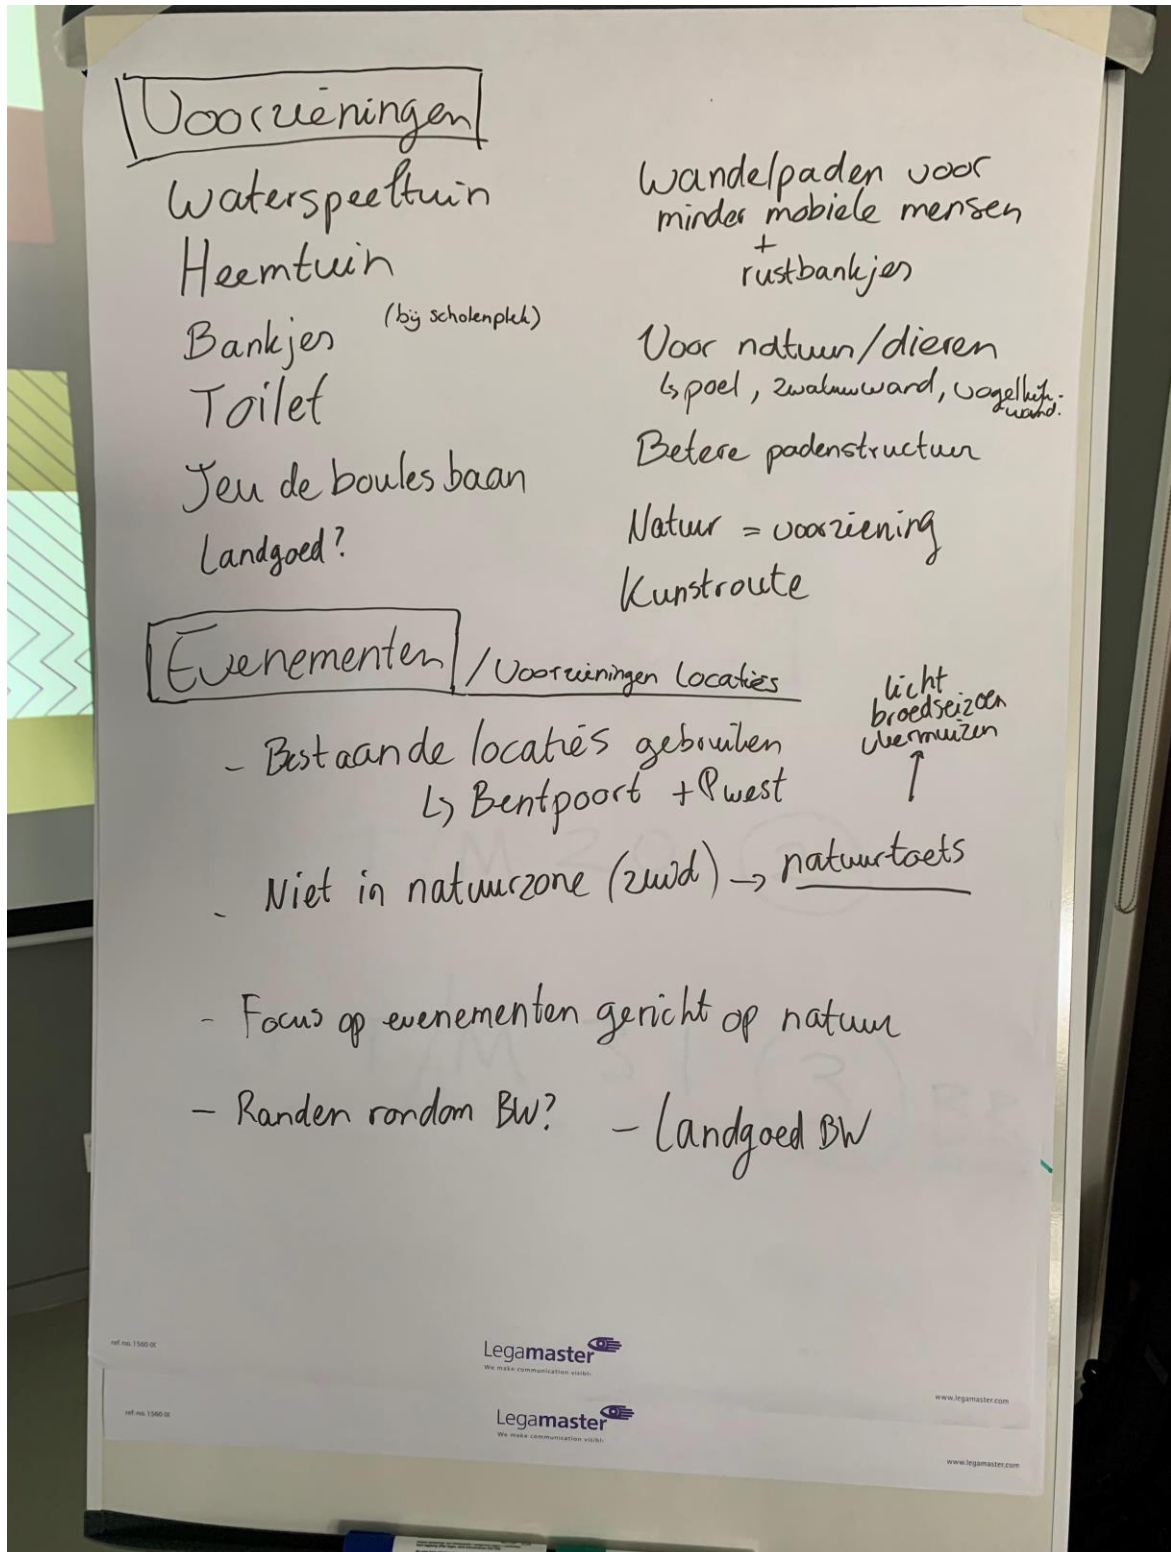 Voorzieningen
Waterspeeltuin
Heemtuin
Bankjes (bij scholenplek)
Toilet
Jeu de boules baan
Landgoed?
Wandelpaden voor
minder mobiele mensen
+
rustbankjes
Voor natuur/dieren
↳ poel, zwaluwwand, vogelkijk-
wand.
Betere padenstructuur
Natuur = voorziening
Kunstroute
Evenementen / Voorzieningen Locaties
- Bestaande locaties gebruiken
↳ Bentpoort + P west
licht
broedseizoen
vleermuizen
↑
- Niet in natuurzone (zuid) → natuurtoets
- Focus op evenementen gericht op natuur
- Randen rondom BW? - Landgoed BW
ref.no. 1560 0(
Legamaster
We make communication visibl
www.legamaster.com
ref.no. 1560 0(
Legamaster
We make communication visibl
www.legamaster.com